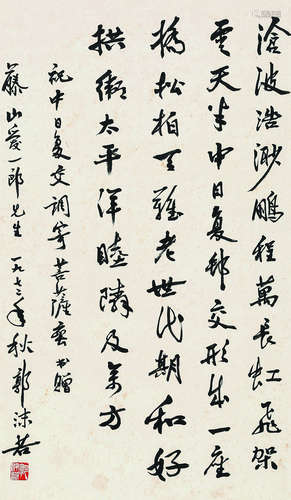 滄波浩渺鵬程萬長虹飛架
雲天半中日复邦交形成一座
橋松柏天難老世代期和好
拱衛太平洋睦隣及萬方
祝中日复交調寄菩薩蛮书贈
藤山爱一郎先生 一九七二年秋 郭沫若